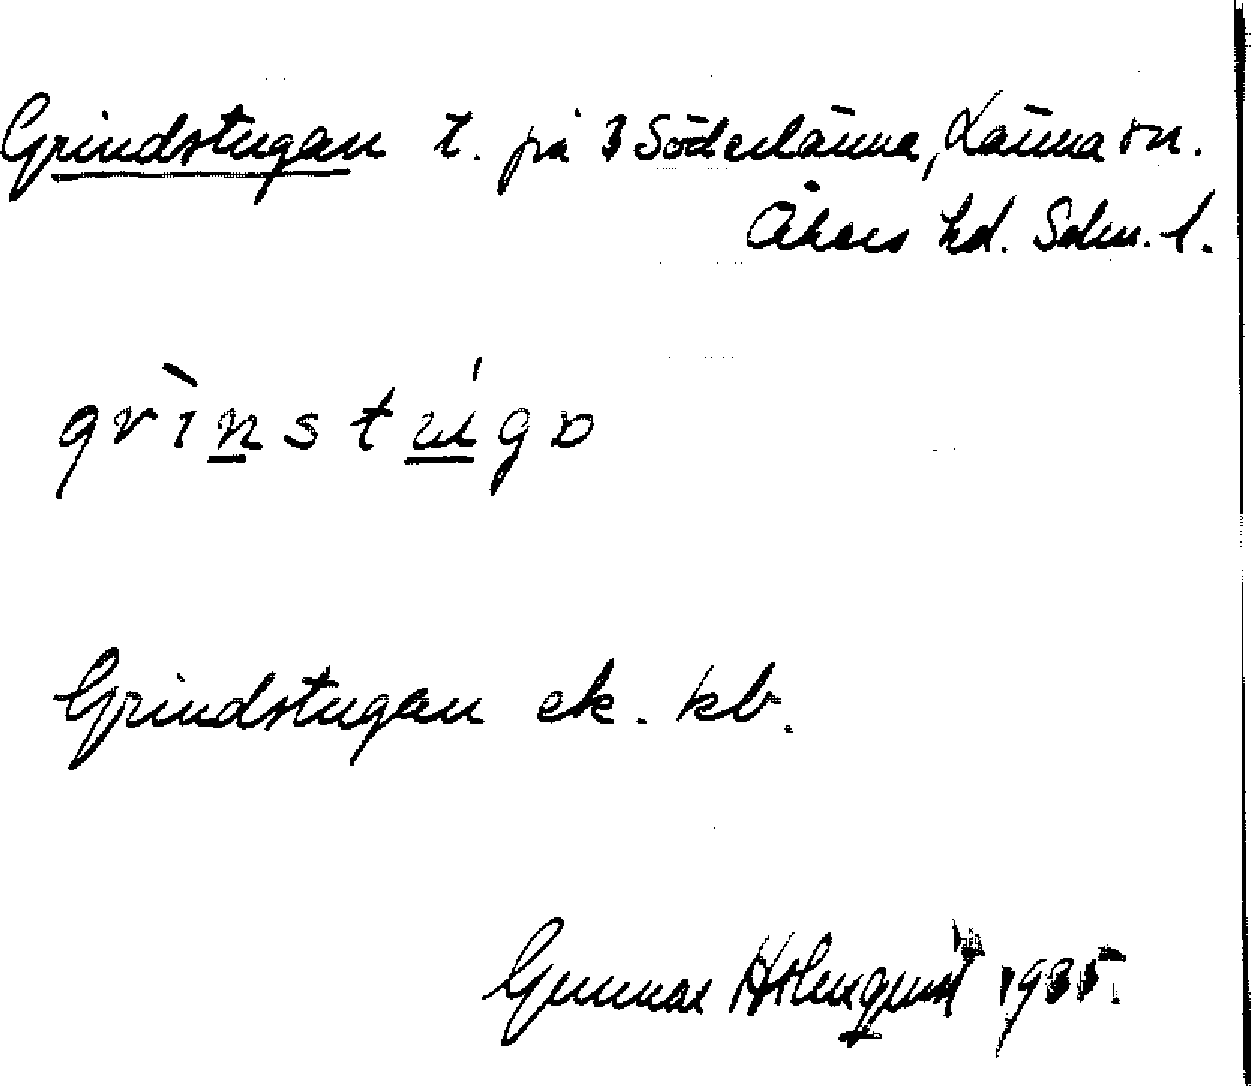 Grindstugan t. på 3 Söderlänna, Länna sn.
Åkers hd. Sdm. l.
grìnstúgo
Grindstugan ek. kb.
Gunnar Holmquist 1935.